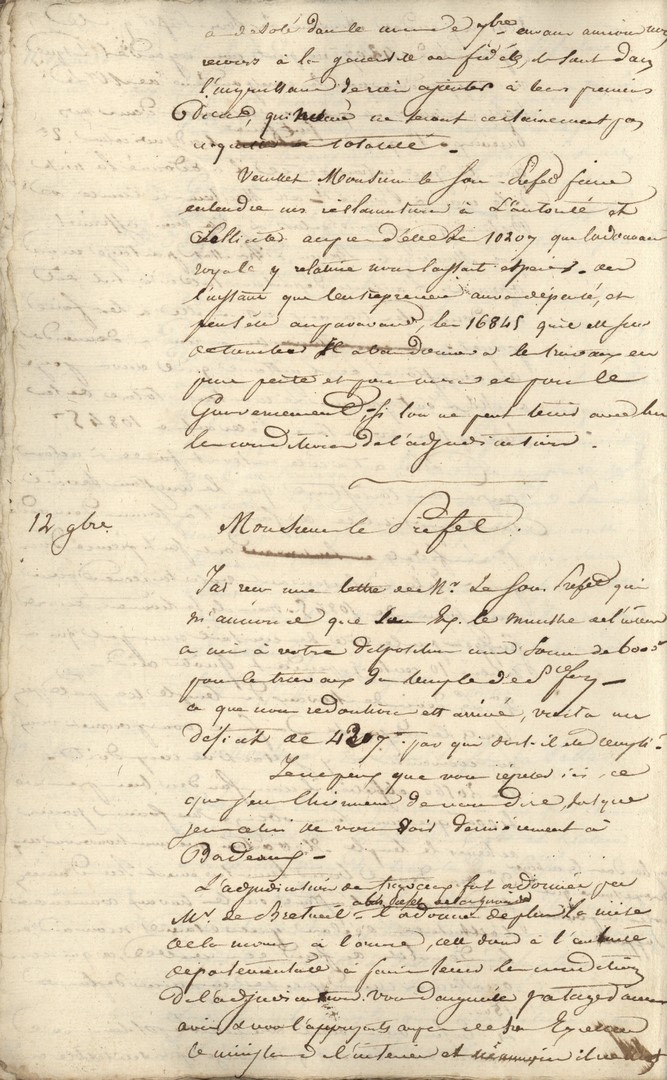 a désolé dans le mois de 7bre nous aurions
recours à la générosité des fidèles, ils sont dans
l'impuissance de rien ajouter à leurs premiers
Dons, qui même ne seront certainement pas
en totalité.
Veuillez Monsieur le Sous-Préfet faire
entendre nos réclamations à l'autorité et
Sollicités auprès d'elle les 10207 que l'ordonnance
royale y relative nous laissait espérer. dès
l'instant que l'entrepreneur aura député, et
peut être auparavant, les 16845 qui
il abandonnera les travaux en
pure perte et pour nous et pour le
Gouvernement, si l'on ne peut tenir
les conditions de l'adjudication.
12 9bre.
Monsieur le Préfet.
J'ai reçu une lettre de Mr. Le Sous Préfet qui
m'annonce que Son Ex. le ministre de l'intérieur
a mis à votre disposition une somme de 6000
pour les travaux du temple de Ste foy —
ce que nous redoutions est arrivé, voilà un
déficit de 4207. par qui doit-il être rempli.
Je ne peux que vous répéter ici ce
que j'eus l'honneur de vous dire, lorsque
je me de vous voir dernièrement à
Bordeaux —
L'adjudication des travaux fut ordonnée par
Mr. de Breteuil
l'ordonna de plus la mise
de la main à l'œuvre, c'est donc à l'autorité
départementale à faire tenir les conditions
de l'adjudication. vous daignates partager
avis & vous l'appuyates auprès de Son Excellence
le ministre de l'intérieur et